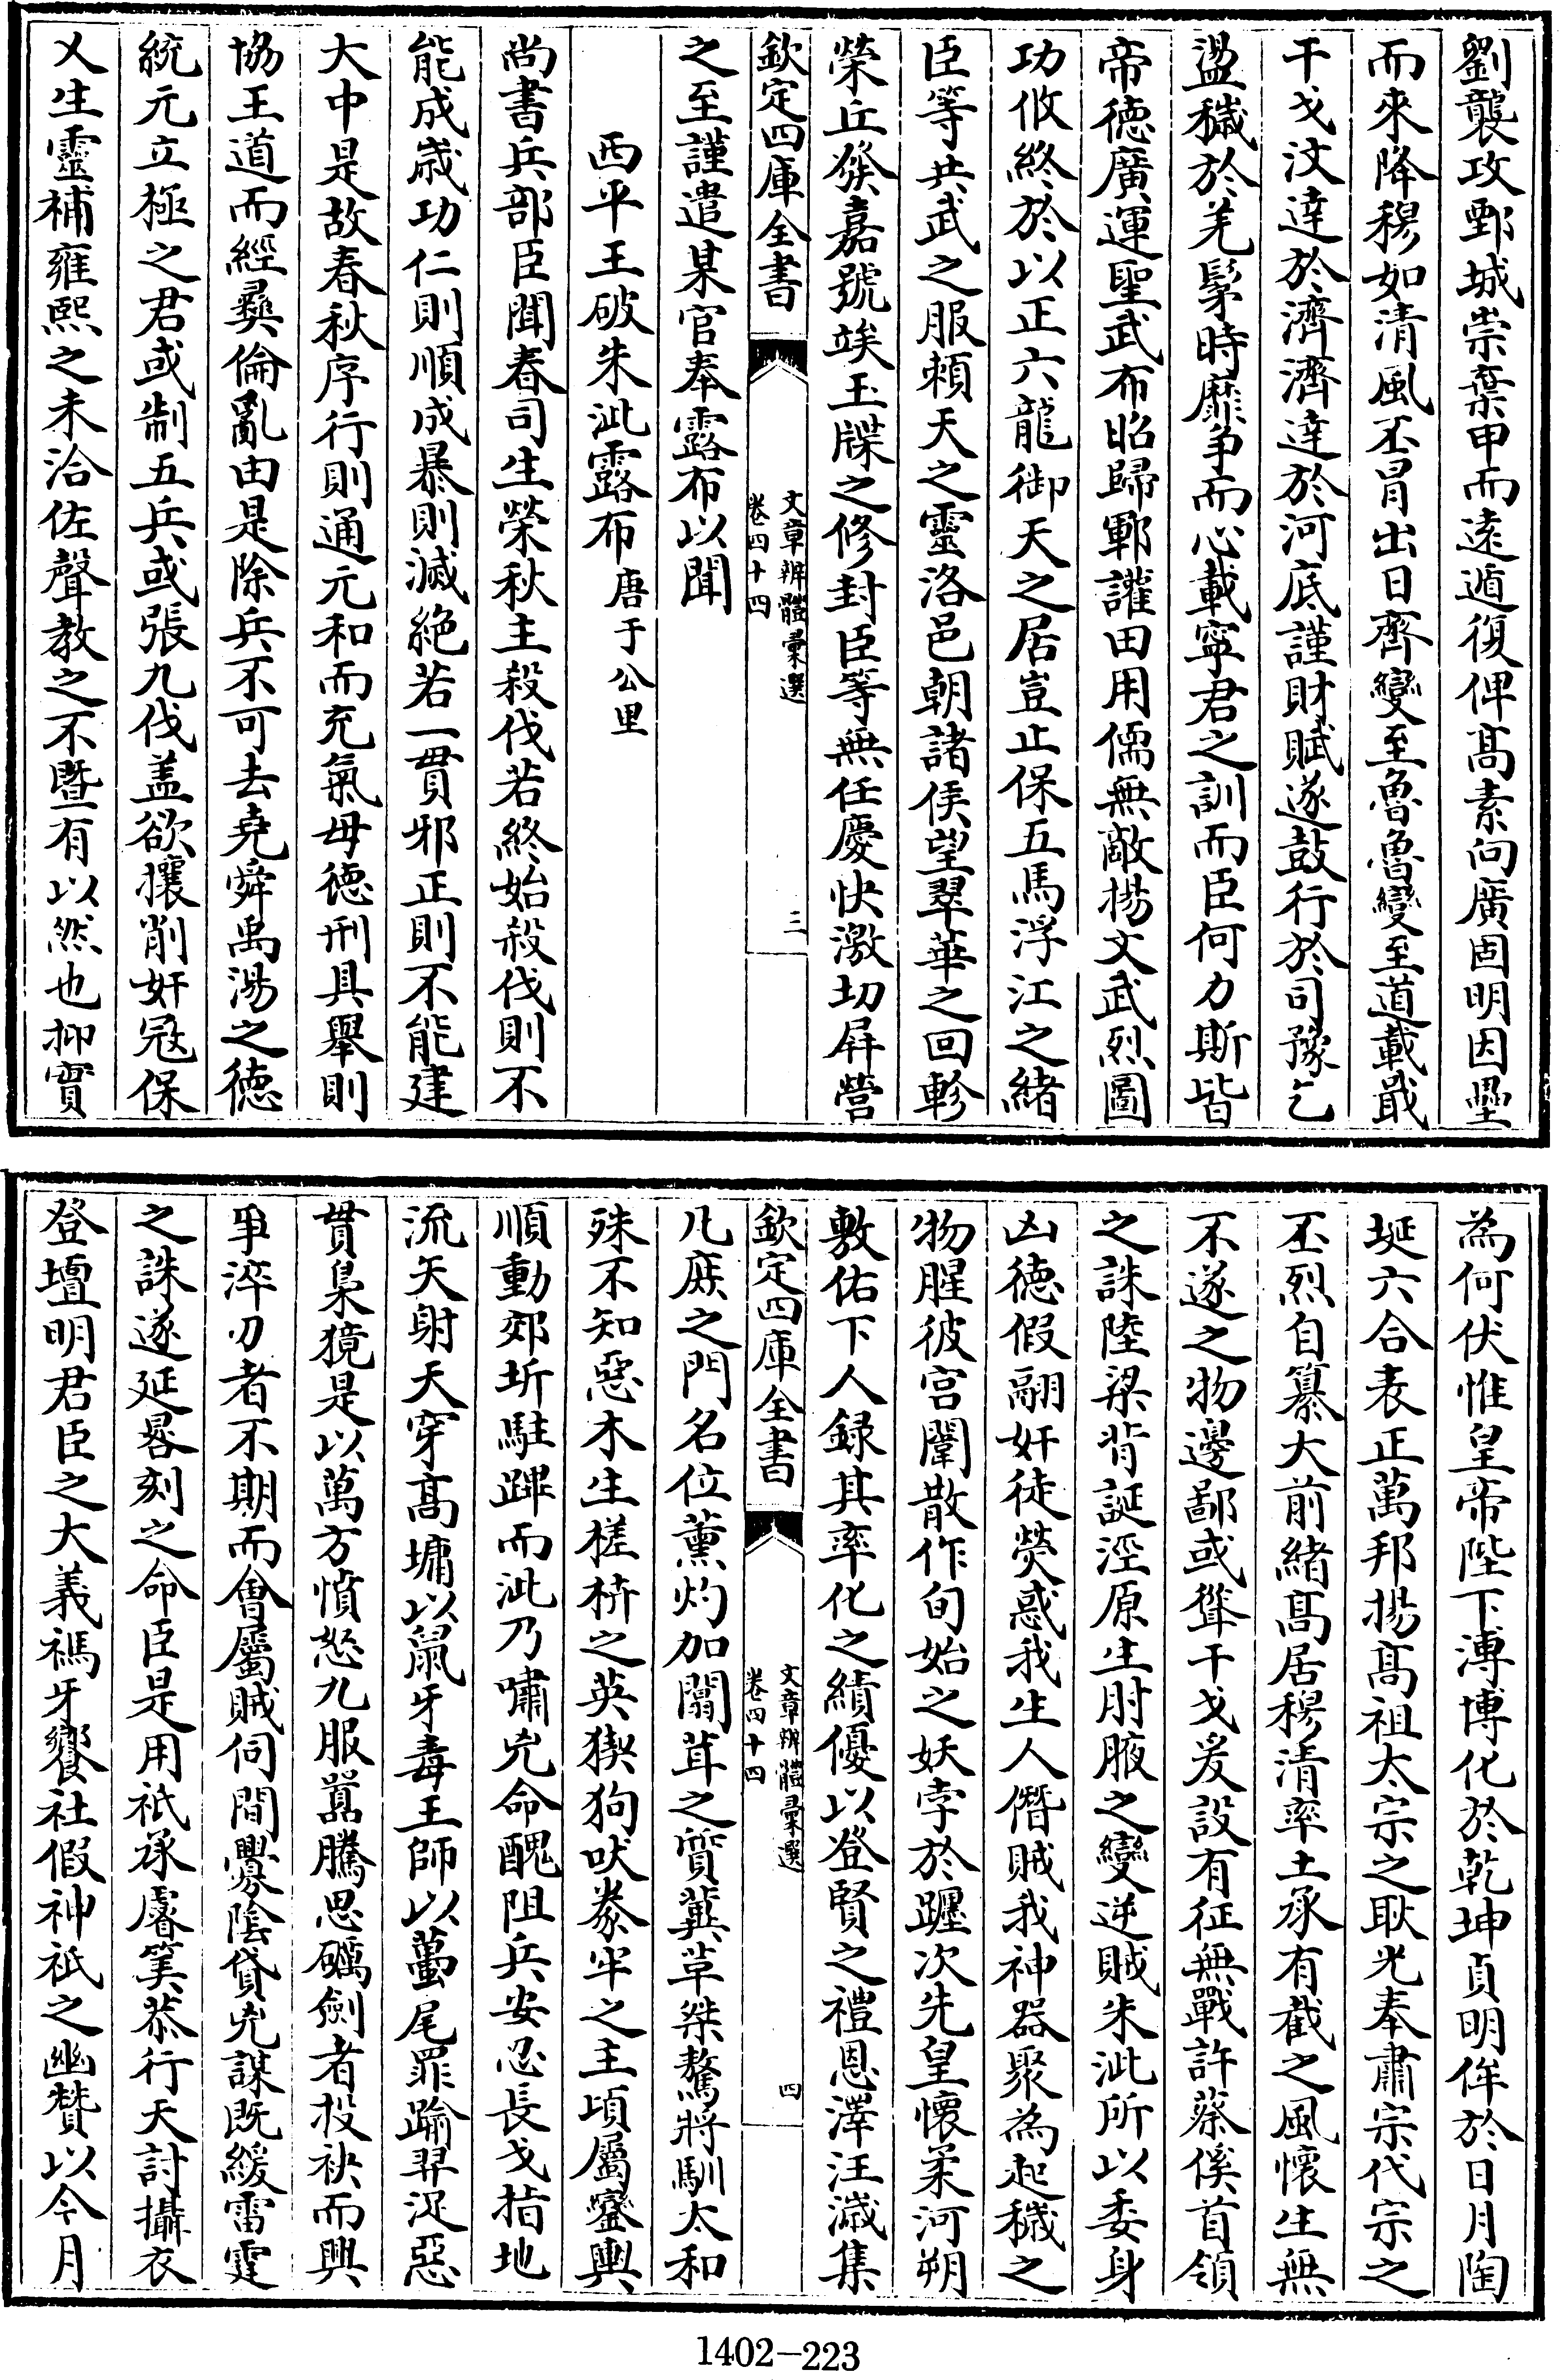 劉襲攻鄄城崇棄甲而遠遁復俾髙素向廣固明因壘
而來降穆如清風丕冒出日齊變至魯魯變至道載戢
干戈汶達於濟濟達於河底謹財賦遂鼓行於司豫乞
盪穢於羌髳時靡争而心載寧君之訓而臣何力斯皆
帝徳廣運聖武布昭歸鄆讙田用儒無敵揚文武烈圖
功攸終於以正六龍御天之居豈止保五馬浮江之緒
臣等共武之服頼天之靈洛邑朝諸侯望翠華之回軫
榮丘發嘉號竢玉牒之修封臣等無任慶快激切屏營
欽定四庫全書
文章辨體彚選
卷四十四
三
之至謹遣某官奉露布以聞
西平王破朱泚露布 唐于公異
尚書兵部臣聞春司生榮秋主殺伐若終始殺伐則不
能成歳功仁則順成暴則滅絶若一貫邪正則不能建
大中是故春秋序行則通元和而充氣母徳刑具舉則
協王道而經彞倫亂由是除兵不可去堯舜禹湯之徳
統元立極之君或制五兵或張九伐盖欲攘削奸冦保
乂生靈補雍熙之未洽佐聲教之不曁有以然也抑實
為何伏惟皇帝陛下溥博化於乾坤貞明侔於日月陶
埏六合表正萬邦揚髙祖太宗之耿光奉肅宗代宗之
丕烈自纂大前緒髙居穆清率土承有截之風懷生無
不遂之物邊鄙或聳干戈爰設有征無戰許蔡傒首領
之誅陸梁背誕涇原生肘腋之變逆賊朱泚所以委身
凶徳假翮奸徒熒惑我生人僭賊我神器聚為起穢之
物腥彼宫闈散作旬始之妖孛於躔次先皇懷柔河朔
敷佑下人録其率化之績優以登賢之禮恩澤汪濊集
欽定四庫全書
文章辨體彚選
卷四十四
四
凡庶之門名位薰灼加闒茸之質冀草桀驁將馴太和
殊不知惡木生槎枿之英猰狗吠豢牢之主頃屬鑾輿
順動郊圻駐蹕而泚乃嘯兇命醜阻兵安忍長戈指地
流矢射天穿髙墉以鼠牙毒王師以蠆尾罪踰羿浞惡
貫梟獍是以萬方憤怒九服嚚騰思礪劍者投袂而興
爭淬刃者不期而會屬賊伺間釁陰貸兇謀既緩雷霆
之誅遂延晷刻之命臣是用祇承睿筭恭行天討攝衣
登壇明君臣之大義禡牙饗社假神祇之幽贊以今月
1402-223